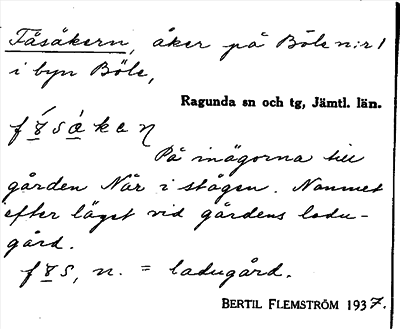 Fåsåkern, åker på Böle n:r 1
i byn Böle,
Ragunda sn och tg, Jämtl. län.
På inägorna till
gården När i stågen. Nammet
efter läget vid gårdens ladu-
gård.
n. = ladugård.
BERTIL FLEMSTRÖM 1937.